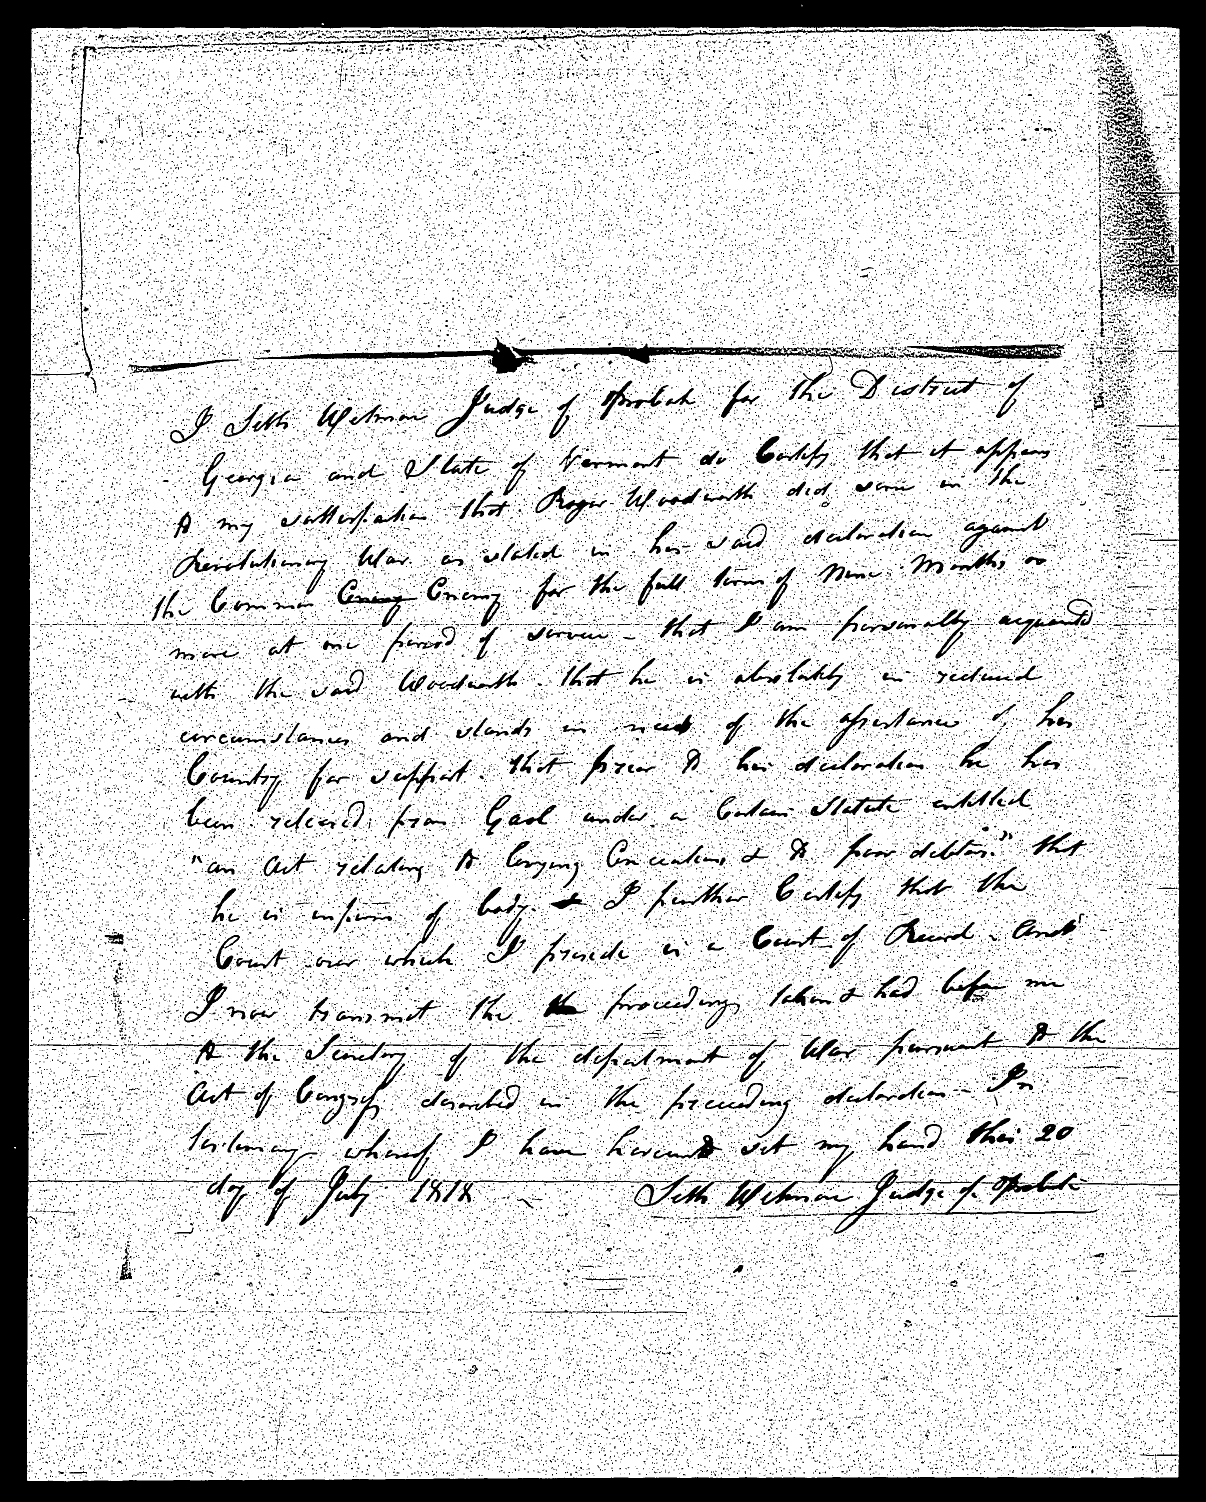 I Seth Wetmore Judge of Probate for the District of
Georgia and State of Vermont do Certify that it appears
to my sattisfaction that Roger Woodworth did serve in the
Revolutionary War as stated in his said declaration against
the Common Enemy Enemy for the full term of Nine Months or
more at one period of service - that I am personally acquainted
with the said Woodworth - that he is absolutely in reduced
circumstances and stands in need of the assistance of his
Country for support. that prior to his declaration he has
been released from Gaol under a Certain Statute entitled
"an Act relating to levying Executions & to poor debtors." that
he is infirm of body. & I further Certify that the
Court over which I preside is a Court of Record - And
I now transmit the the proceedings taken & had before me
to the Secretary of the department of War pursuant to the
Act of Congress described in the preceeding declaration - In
testimony whereof I have hereunto set my hand this 20
day of July 1818 Seth Wetmore Judge of Probate